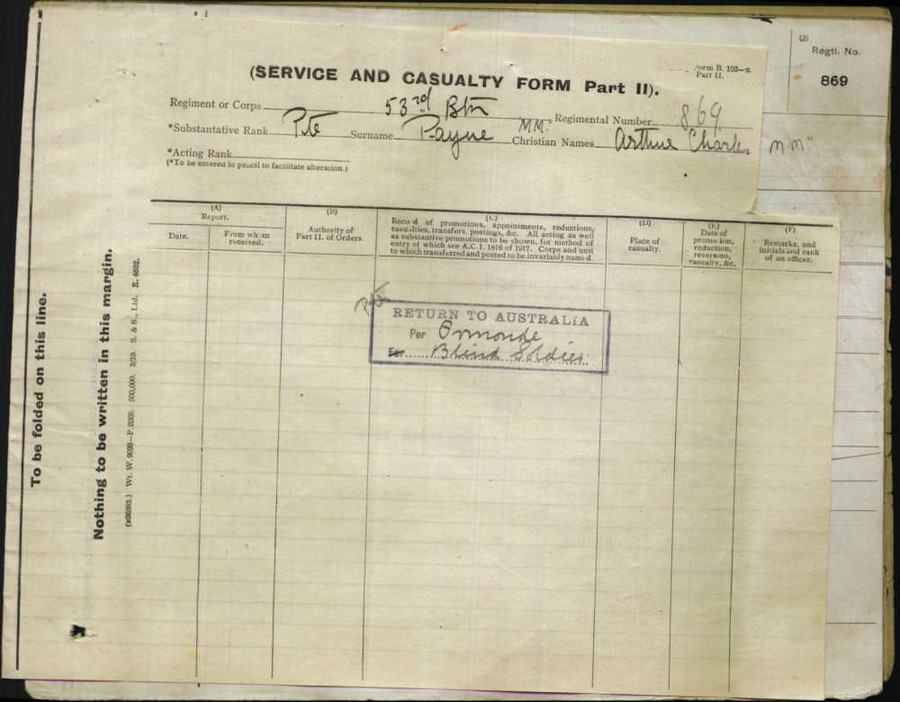 (2)
Regtl. No.
869
Form B. 103—2.
Part II.
(SERVICE AND CASUALTY FORM Part II).
Regiment or Corps 53rd Btn Regimental Number 869
*Substantive Rank Pte Surname Payne MM. Christian Names Arthur Charles
M.M"
*Acting Rank
(*To be entered in pencil to facilitate alteration.)
(A)
Report.
Date.
From whom
received.
(B)
Authority of
Part II. of Orders.
(C)
Record of promotions, appointments, reductions,
casualties, transfers, postings, &c. All acting as well
as substantive promotions to be shown, for method of
entry of which see A.C.I. 1816 of 1917. Corps and unit
to which transferred and posted to be invariably named.
(D)
Place of
casualty.
(E)
Date of
promotion,
reduction,
reversion,
casualty, &c.
(F)
Remarks, and
initials and rank
of an officer.
RETURN TO AUSTRALIA
Per Ormonde
For Blind Soldier.
To be folded on this line.
Nothing to be written in this margin.
S. & S., Ltd. E. 4602.